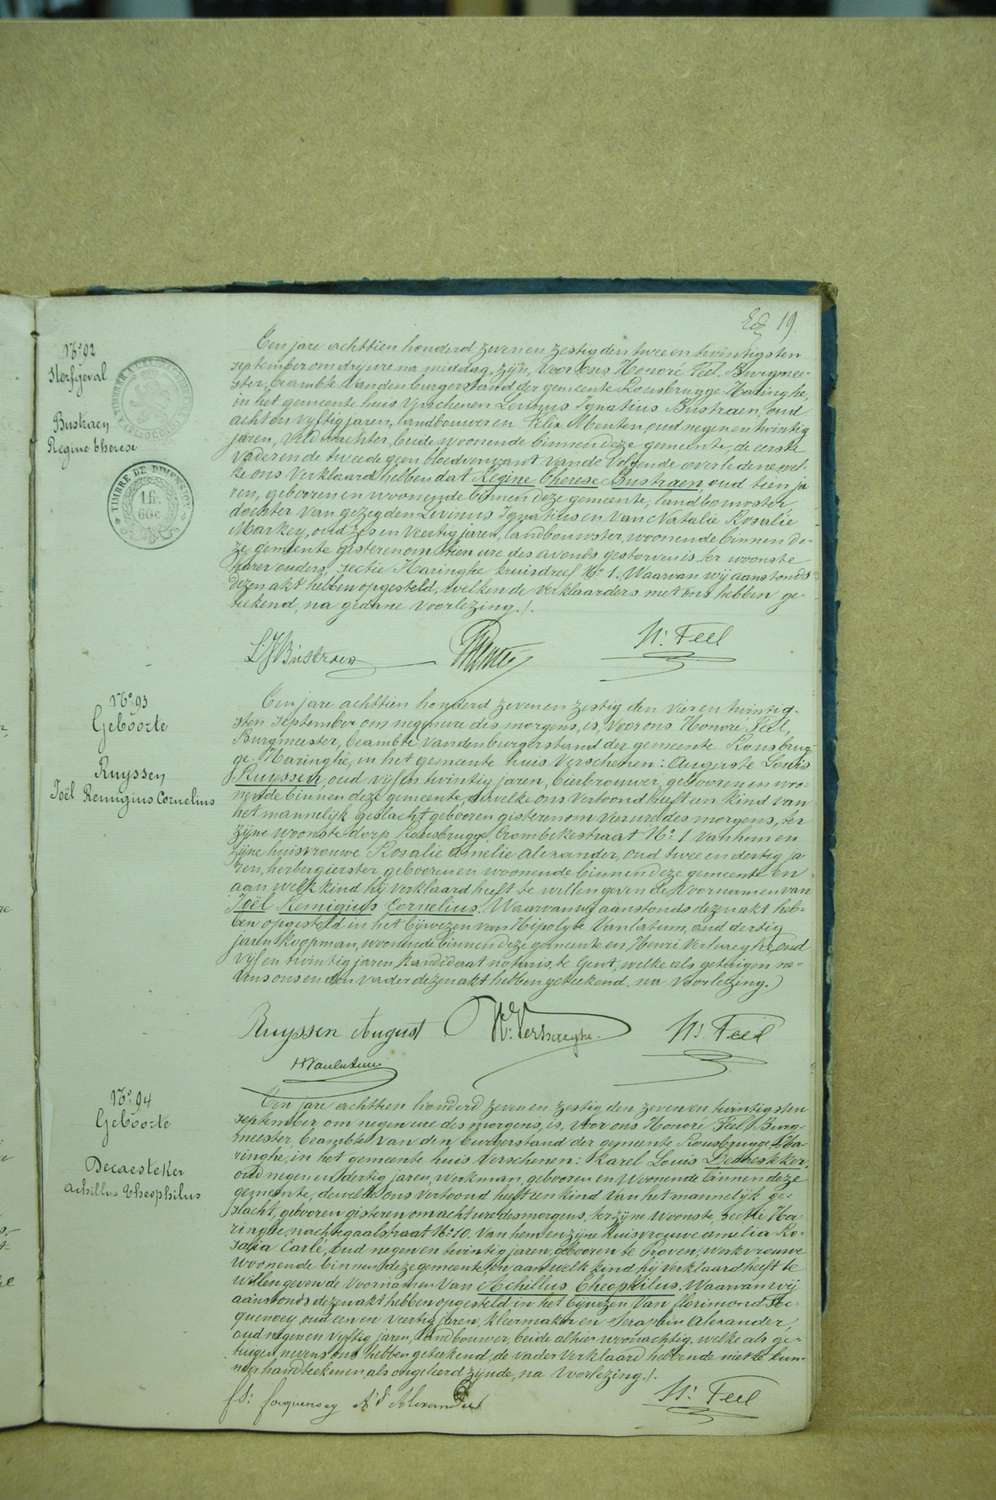 19.
N.º 92
Sterfgeval
Bustraen
Regine Therese
TIMBRE DE DIMENSION
1 f.
60 c.
Een jare achttien honderd zeven en zestig den twee en twintigsten
september om drij ure na middag, zijn, voor ons Honoré Feel, Burgmee-
ster, beambte van den burgerstand der gemeente Rousbrugge Haringhe,
in het gemeente huis verschenen Levinus Ignatius Bustraen, oud
acht en vyftig jaren, landbouwer en Felix Menten oud negen en twintig
jaren, veldwachter, beide woonende binnen deze gemeente, de eerste
vader en de tweede geen bloedverwant van de volgende overledene, wel-
ke ons verklaard hebben dat Regine Therese Bustraen oud tien ja-
ren, geboren en woonende binnen deze gemeente, landbouwster
dochter van gezegden Levinus Ignatius en van Natalie Rosalie
Markey, oud zes en veertig jaren, landbouwster, woonende binnen de-
ze gemeente gisteren om tien ure des avonds gestorven is, ter woonste
harer ouders, sectie Haringhe kruisdreef N.º 1. Waarvan wij aanstonds
dezen akt hebben opgesteld, welken de verklaarders met ons hebben ge-
teekend, na gedane voorlezing./.
L J Bustraen
H.: Feel
N.º 93
Geboorte
Ruyssen
Joël Remigius Cornelius
Een jare achttien honderd zeven en zestig den vier en twintig-
sten september om negen ure des morgens, is, voor ons Honoré Feel,
Burgmeester, beambte van den burgerstand der gemeente Rousbrug-
ge Haringhe, in het gemeente huis verschenen: Auguste Louis
Ruyssen, oud vijf en twintig jaren, bierbrouwer, geboren en woo-
nende binnen deze gemeente, dewelke ons vertoond heeft een kind van
het mannelijk geslacht geboren gisteren om vier ure des morgens, ter
zijne woonste dorp Rousbrugge, Crombekestraat N.º 1 van hem en
zijne huisvrouwe Rosalie Amelie Alexander, oud twee en dertig ja-
ren, herbergierster, geboren en woonende binnen deze gemeente en
aan welk kind hij verklaard heeft te willen geven de voornamen van
Joël Remigius Cornelius. Waarvan wij aanstonds dezen akt heb-
ben opgesteld in het bijwezen van Hipolyte Vanlatum, oud dertig
jaren koopman, woonende binnen deze gemeente en Henri Verhaeghe, oud
vijf en twintig jaren, kandidaat notaris, te Gent, welke als getuigen ne-
vens ons en den vader dezen akt hebben geteekend, na voorlezing.)
Ruyssen August
H.: Verhaeghe
H.: Feel
H Vanlatum
N.º 94
Geboorte
Decaesteker
Achillus Theophilus
Een jare achttien honderd zeven en zestig den zeven en twintigsten
september, om negen ure des morgens, is, voor ons Honoré Feel, Burg-
meester, beambte van den burgerstand der gemeente Rousbrugge Ha-
ringhe, in het gemeente huis verschenen: Karel Louis
oud negen en dertig jaren, werkman, geboren en woonende binnen deze
gemeente, dewelke ons vertoond heeft een kind van het mannelijk ge-
slacht, geboren gisteren om acht ure des morgens, ter zijne woonste, sectie Ha-
ringhe, nachtegaalstraat N.º 10. Van hem en zijne huisvrouwe Amelia Ro-
salia Carle, oud negen en twintig jaren, geboren te Proven, werkvrouwe
woonende binnen deze gemeente en aan welk kind hij verklaard heeft te
willen geven de voornamen van Achillus Theophilus. Waarvan wij
aanstonds dezen akt hebben opgesteld in het bijwezen van florimond Jo-
quensey oud een en veertig jaren, kleermaker en Seraphin Alexander,
oud negen en vyftig jaren, landbouwer, beide alhier woonachtig, welke als ge-
tuigen nevens ons hebben geteekend, de vader verklaard hebbende niet te kun-
nen handteekenen als ongeleerd zijnde, na voorlezing./.
H.: Feel